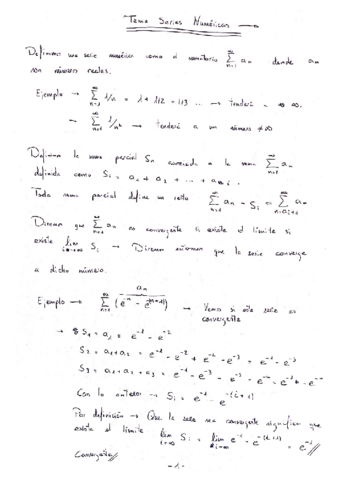 Tema Series Numéricas →
Definimos una serie numérica como el sumatorio ∑_{n=1}^{∞} a_n donde a_n
son números reales.
Ejemplo → ∑_{n=1}^{∞} 1/n = 1 + 1/2 + 1/3 ... → tenderá a ∞.
∑_{n=1}^{∞} 1/n² → tenderá a un número ≠ ∞
Definimos la suma parcial S_n asociada a la suma ∑_{n=1}^{∞} a_n
definida como S_i = a_1 + a_2 + ... + a_i
Toda suma parcial define un resto ∑_{n=1}^{∞} a_n - S_i = ∑_{n=i+1}^{∞} a_n
Diremos que ∑_{n=1}^{∞} a_n es convergente si existe el límite si
existe lim_{i→∞} S_i → Diremos entonces que la serie converge
a dicho número.
Ejemplo → ∑_{n=1}^{∞} (e^{-n} - e^{-(n+1)}) → Vemos si esta serie es
a_n
convergente
→ S_1 = a_1 = e^{-1} - e^{-2}
S_2 = a_1 + a_2 = e^{-1} - e^{-2} + e^{-2} - e^{-3} = e^{-1} - e^{-3}
S_3 = a_1 + a_2 + a_3 = e^{-1} - e^{-3} + e^{-3} - e^{-4} = e^{-1} - e^{-4}
Con lo anterior → S_i = e^{-1} - e^{-(i+1)}
Por definición → Que la serie sea convergente significa que
existe el límite lim_{i→∞} S_i = lim_{i→∞} e^{-1} - e^{-(i+1)} = e^{-1} //
Convergente //
- 1 -